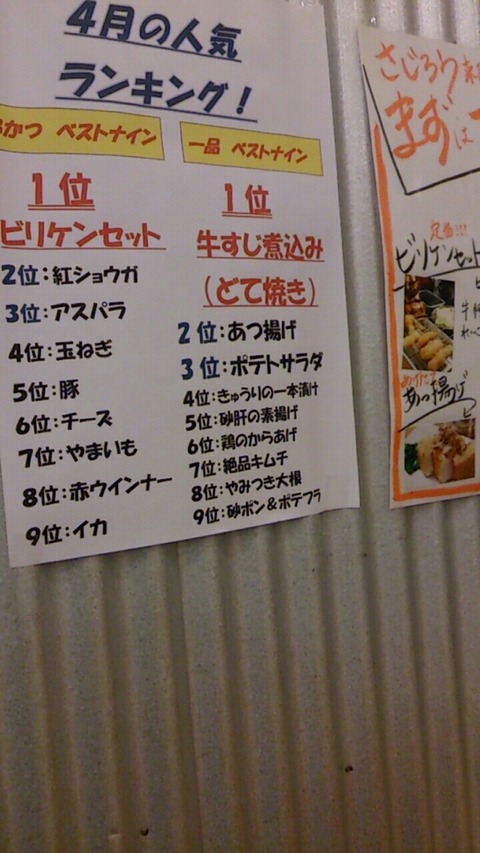 4月の人気
ランキング!
かつ ベストナイン
1位
ビリケンセット
2位:紅ショウガ
3位:アスパラ
4位:玉ねぎ
5位:豚
6位:チーズ
7位:やまいも
8位:赤ウインナー
9位:イカ
一品 ベストナイン
1位
牛すじ煮込み
(どて焼き)
2位:あつ揚げ
3位:ポテトサラダ
4位:きゅうりの一本漬け
5位:砂肝の素揚げ
6位:鶏のからあげ
7位:絶品キムチ
8位:やみつき大根
9位:砂ポン&ポテフラ
さじろう
まずは
定番!!!
ビリケンセット
あつ揚げ